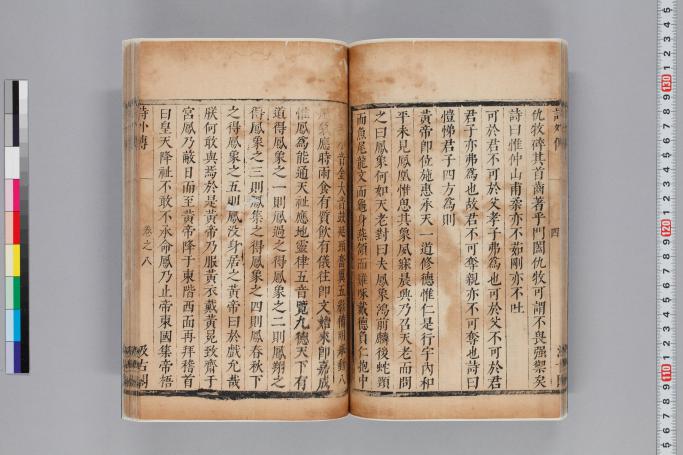 詩外傳
四
仇牧碎其首齒著乎門闔仇牧可謂不畏强禦矣
詩曰惟仲山甫柔亦不茹剛亦不吐
可於君不可於父孝子弗爲也可於父不可於君
君子亦弗爲也故君不可奪親亦不可奪也詩曰
愷悌君子四方爲則
黃帝即位施惠承天一道修德惟仁是行宇內和
平未見鳳凰惟思其象夙寐晨興乃召天老而問
之曰鳳象何如天老對曰夫鳳象鴻前麟後蛇頸
而魚尾龍文而龜身燕頷而雞啄戴德負仁抱中
小音金大音鼓延頸奮翼五彩備明舉動八
風氣應時雨食有質飲有儀往即文始來即嘉成
惟鳳爲能通天祉應地靈律五音覽九德天下有
道得鳳象之一則鳳過之得鳳象之二則鳳翔之
得鳳象之三則鳳集之得鳳象之四則鳳春秋下
之得鳳象之五則鳳没身居之黃帝曰於戲允哉
朕何敢與焉於是黃帝乃服黃衣戴黃冕致齋于
宮鳳乃蔽日而至黃帝降于東階西面再拜稽首
曰皇天降祉不敢不承命鳳乃止帝東園集帝梧
詩外傳
卷之八
汲古閣